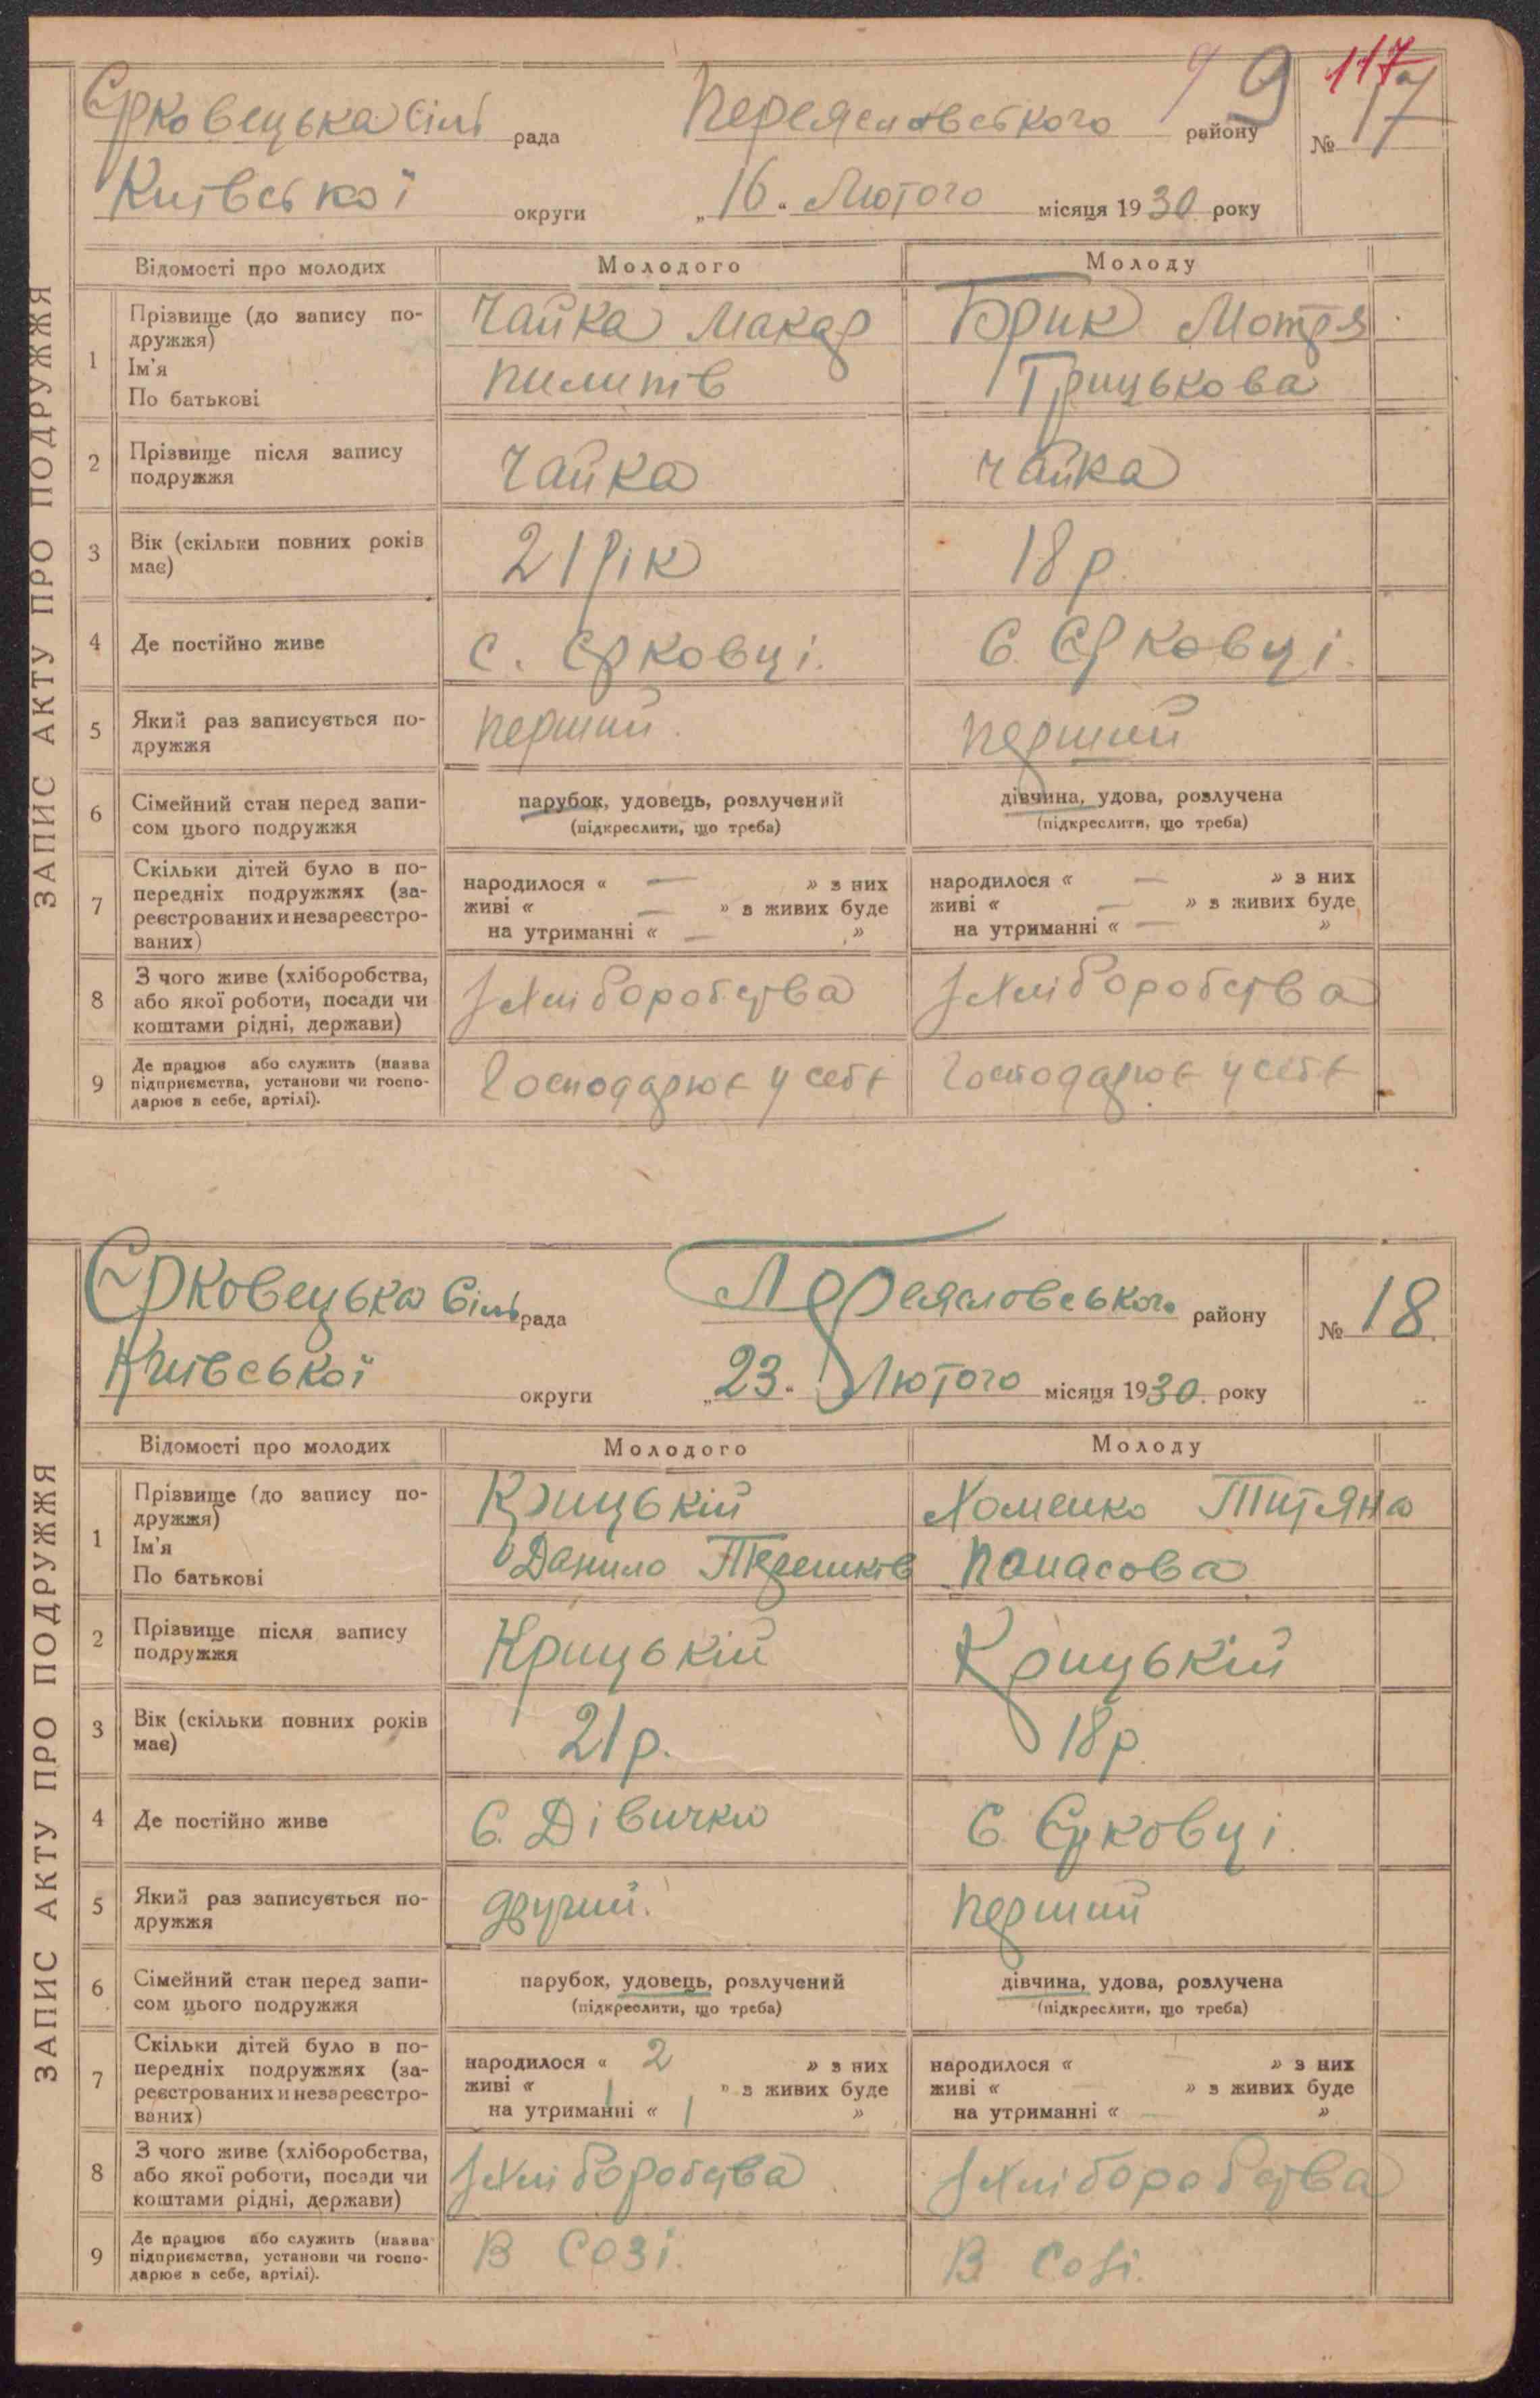 9 9 117
Єрковецька Сіль рада Переяславського району № 17
Київської округи „16“ Лютого місяця 1930 року
ЗАПИС АКТУ ПРО ПОДРУЖЖЯ
Відомості про молодих Молодого Молоду
1 Прізвище (до запису по- Чайка Макар Брик Мотря
дружжя)
Ім'я Пилипів Грицькова
По батькові
2 Прізвище після запису Чайка Чайка
подружжя
3 Вік (скільки повних років 21 рік 18 р
має)
4 Де постійно живе с. Єрковці. С. Єрковці.
5 Який раз записується по- перший. перший
дружжя
6 Сімейний стан перед запи- парубок, удовець, розлучений дівчина, удова, розлучена
сом цього подружжя (підкреслити, що треба) (підкреслити, що треба)
7 Скільки дітей було в по- народилося « — » з них народилося « — » з них
передніх подружжях (за- живі « — » з живих буде живі « — » з живих буде
реєстрованих и незареєстро- на утриманні « — » на утриманні « — »
ваних)
8 З чого живе (хліборобства, З хліборобства З хліборобства
або якої роботи, посади чи
коштами рідні, держави)
9 Де працює або служить (назва Господарює у себе Господарює у себе
підприємства, установи чи госпо-
дарює в себе, артілі).
Єрковецька Сіль рада Переясловського району № 18.
Київської округи „23. Лютого місяця 1930. року
ЗАПИС АКТУ ПРО ПОДРУЖЖЯ
Відомості про молодих Молодого Молоду
1 Прізвище (до запису по- Крицькій Хоменко Титяна
дружжя)
Ім'я Данило Терешків Панасова
По батькові
2 Прізвище після запису Крицькій Крицькій
подружжя
3 Вік (скільки повних років 21 р. 18 р.
має)
4 Де постійно живе С. Дівички С. Єрковці.
5 Який раз записується по- другий. перший
дружжя
6 Сімейний стан перед запи- парубок, удовець, розлучений дівчина, удова, розлучена
сом цього подружжя (підкреслити, що треба) (підкреслити, що треба)
7 Скільки дітей було в по- народилося « 2 » з них народилося « — » з них
передніх подружжях (за- живі « 1 » з живих буде живі « — » з живих буде
реєстрованих и незареєстро- на утриманні « 1 » на утриманні « — »
ваних)
8 З чого живе (хліборобства, З хліборобства З хліборобства
або якої роботи, посади чи
коштами рідні, держави)
9 Де працює або служить (назва В Созі. В Созі.
підприємства, установи чи госпо-
дарює в себе, артілі).